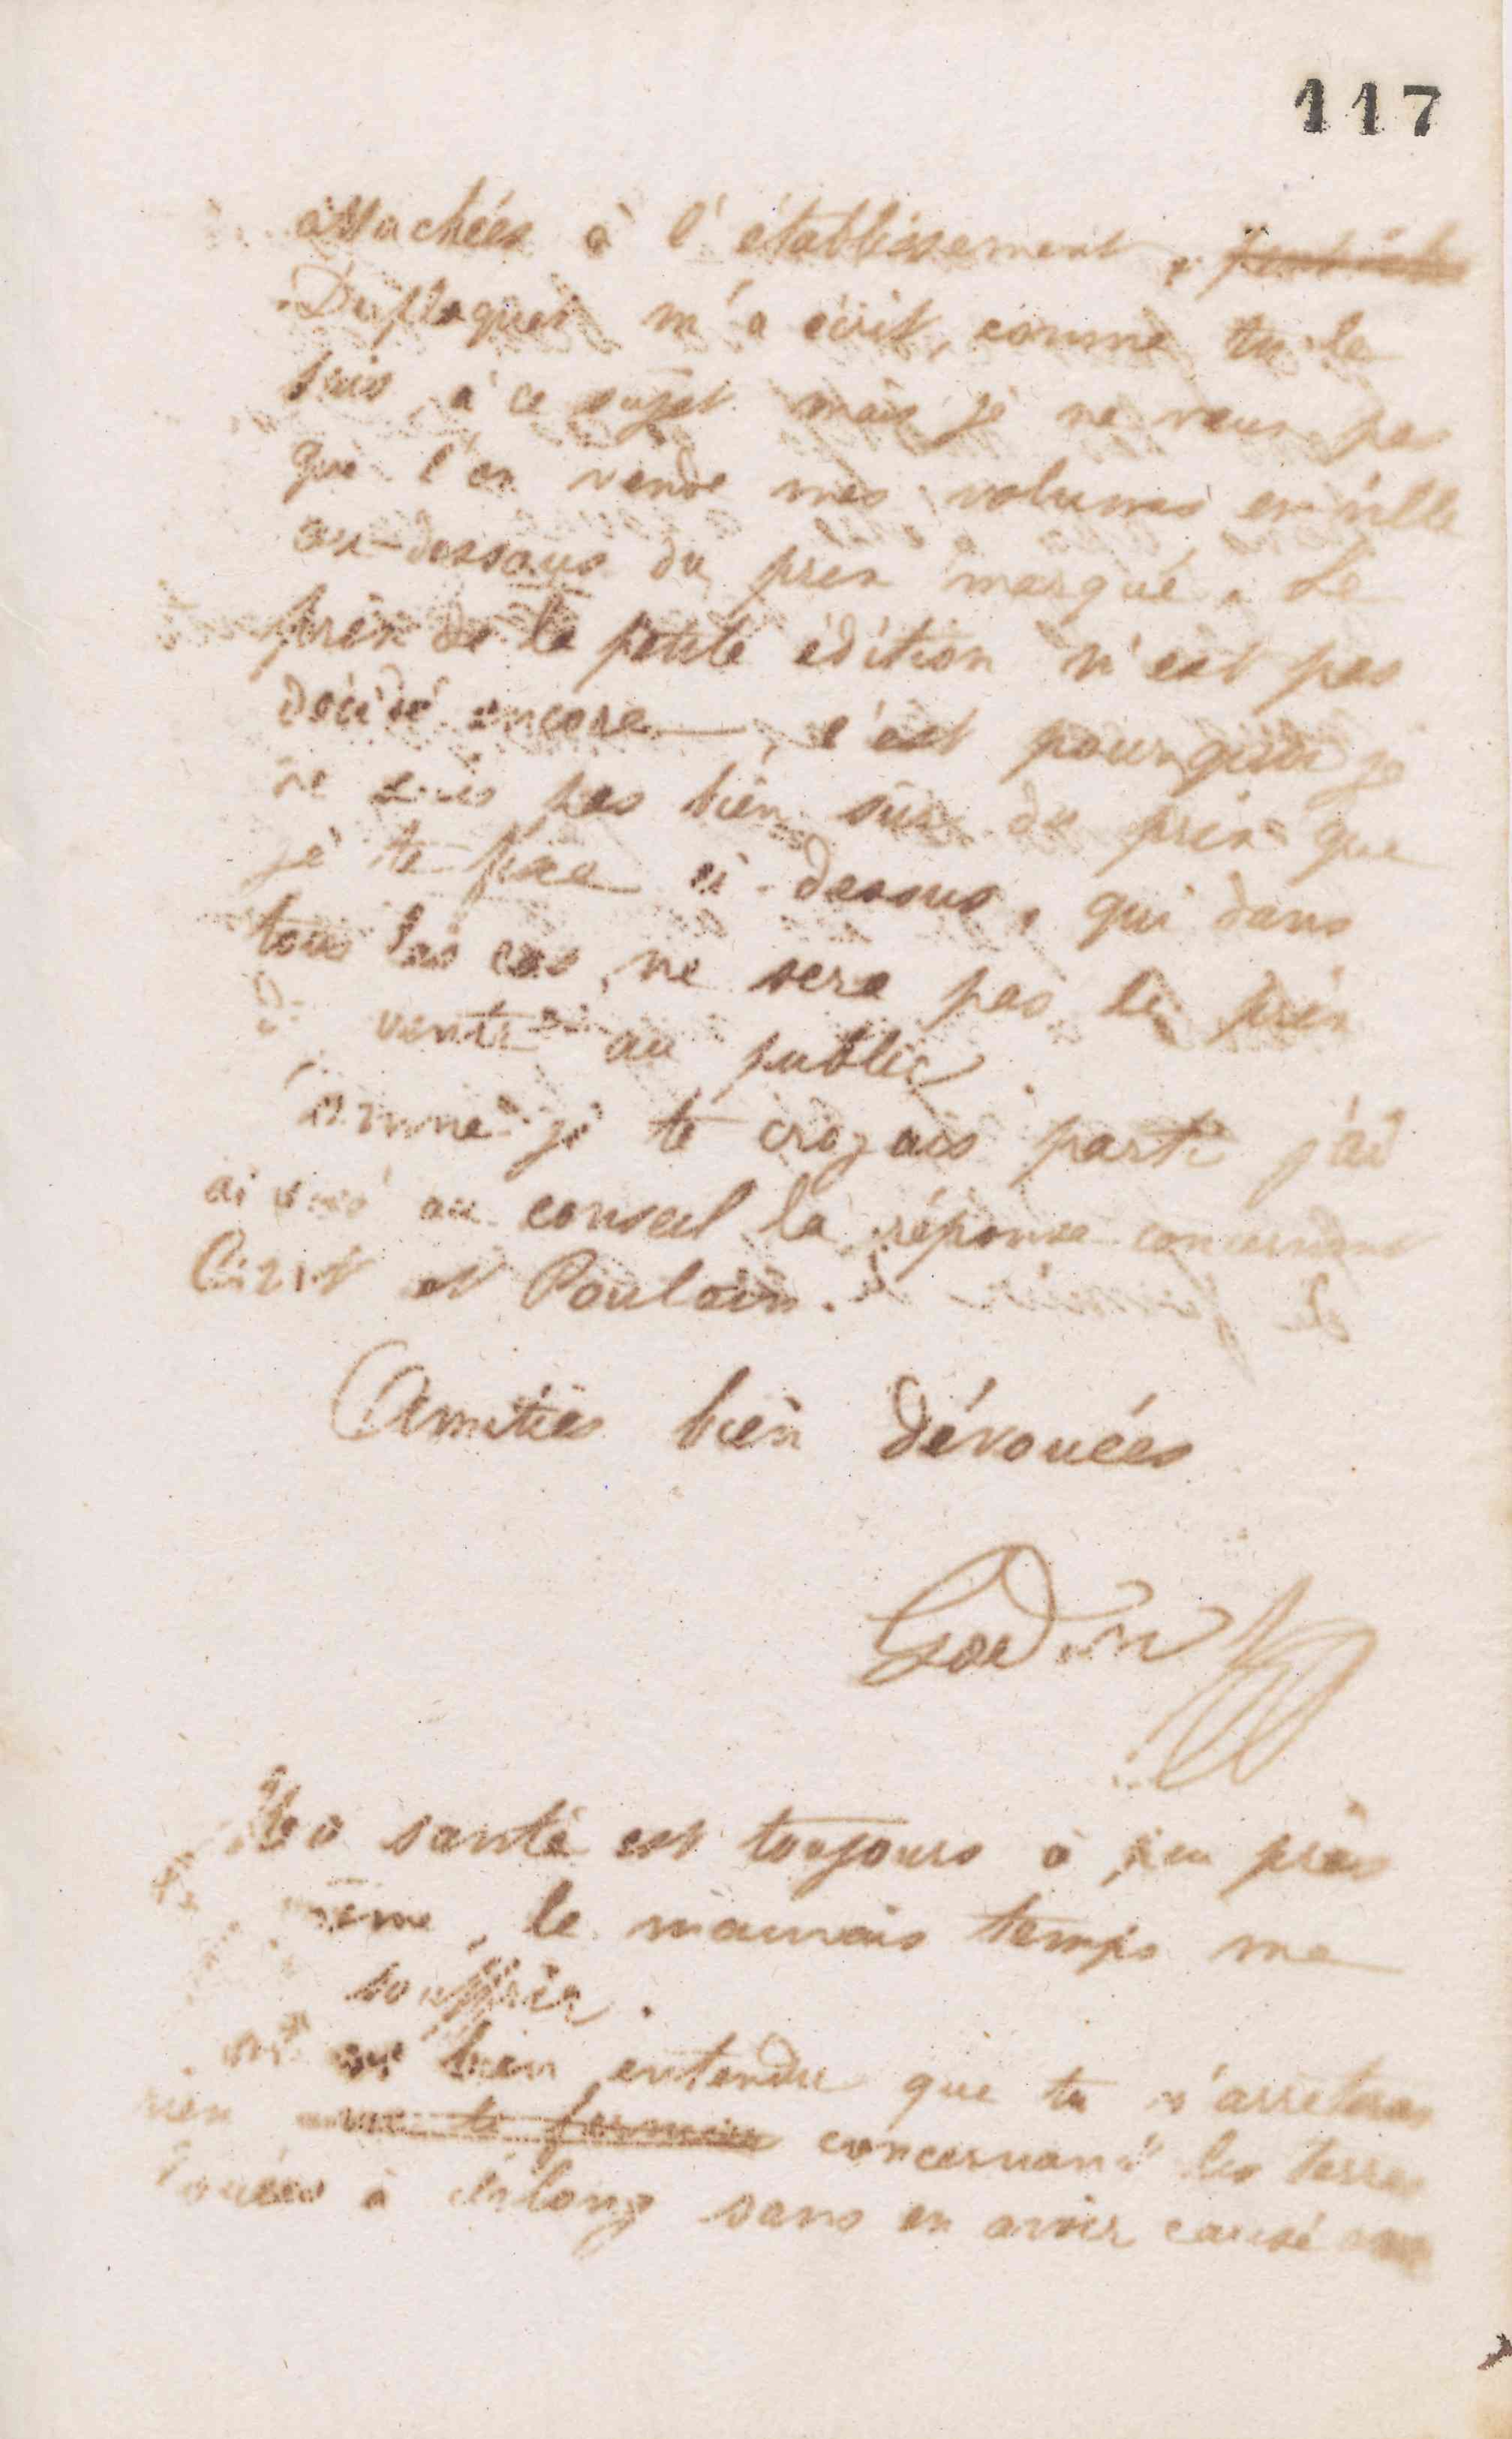 117
attachées à l'établissement,
Duplaquet m'a écrit, comme tu le
sais, à ce sujet mais je ne veux pas
que l'on vende mes volumes en ville
au-dessous du prix marqué. Le
prix de la petite édition n'est pas
décidé encore, c'est pourquoi je
ne suis pas bien sûr du prix que
je te fixe ci-dessus, qui dans
tous les cas, ne sera pas le prix
de vente au public.
Comme je te croyais parti j'ai
au conseil la réponse concernant
et Poulain.
Amitiés bien dévouées
Godin
Ma santé est toujours à peu près
même, le mauvais temps me
souffrir.
bien entendu que tu n'arrêteras
rien concernant les terres
louées à sans en avoir causé